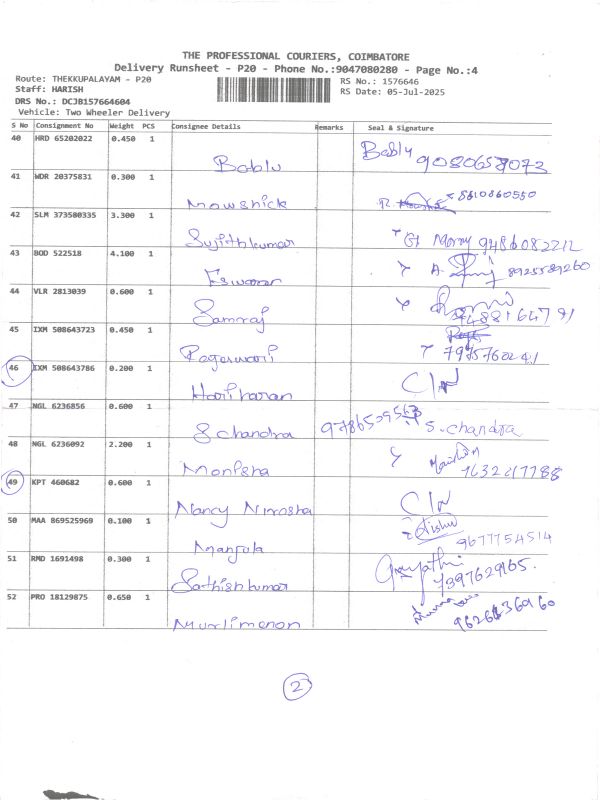 THE PROFESSIONAL COURIERS, COIMBATORE
Delivery Runsheet - P20 - Phone No.:9047080280 - Page No.:4
Route: THEKKUPALAYAM - P20
RS No.: 1576646
Staff: HARISH
RS Date: 05-Jul-2025
DRS No.: DCJB157664604
Vehicle: Two Wheeler Delivery
S No Consignment No Weight PCS Consignee Details Remarks Seal & Signature
40 HRD 65202022 0.450 1 Bablu Bablu 9080658073
41 WDR 20375831 0.300 1 Mowshick 8610860550
42 SLM 373580335 3.300 1 Sujithkumar 9486082212
43 BOD 522518 4.100 1 Eswaran 8925589260
44 VLR 2813039 0.600 1 Samraj
45 IXM 508643723 0.450 1 Rageswari
46 IXM 508643786 0.200 1 Hariharan
47 NGL 6236856 0.600 1 S chandra S. chandra
48 NGL 6236092 2.200 1 Monisha
49 KPT 460682 0.600 1 Nancy Nirosha
50 MAA 869525969 0.100 1 Manjula 9677754514
51 RMD 1691498 0.300 1 Sathishkumar Gayathri 7397629165.
52 PRO 18129875 0.650 1 Murlimenon
2